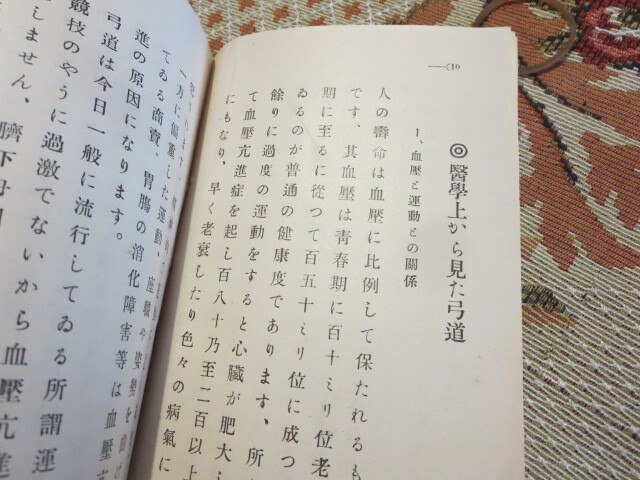 (10
◎醫學上から見た弓道
1、血壓と運動との關係
人の壽命は血壓に比例して保たれるも
です、其血壓は靑春期に百十ミリ位老
期に至るに從つて百五十ミリ位に成つ
ゐるのが普通の健康度であります、所
餘りに過度の運動をすると心臟が肥大
て血壓亢進症を起し百八十乃至二百以上
にもなり、早く老衰したり色々の病氣に
一方に偏重した運動、座職や姿勢を
てゐる商賣、胃腸の消化障害等は血壓亢
進の原因になります。
弓道は今日一般に流行してゐる所謂運
競技のやうに過激でないから血壓亢進
しません、臍下丹田